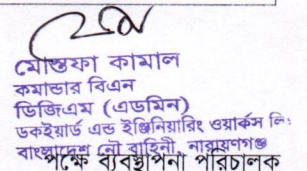 মোস্তফা কামাল
কমান্ডার বিএন
ডিজিএম (এডমিন)
ডকইয়ার্ড এন্ড ইঞ্জিনিয়ারিং ওয়ার্কস লিঃ
বাংলাদেশ নৌ বাহিনী, নারায়ণগঞ্জ
পক্ষে ব্যবস্থাপনা পরিচালক